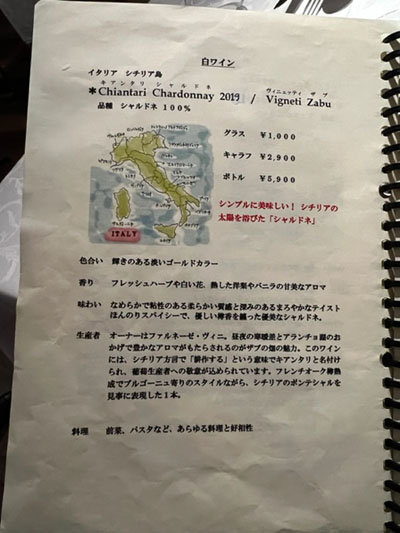 白ワイン
イタリア シチリア島
キアンタリ シャルドネ ヴィニェッティ ザブ
*Chiantari Chardonnay 2019 / Vigneti Zabu
品種 シャルドネ 100%
グラス ¥1,000
キャラフ ¥2,900
ボトル ¥5,900
シンプルに美味しい! シチリアの
太陽を浴びた「シャルドネ」
ITALY
色合い 輝きのある淡いゴールドカラー
香り フレッシュハーブや白い花、熟した洋梨やバニラの甘美なアロマ
味わい なめらかで粘性のある柔らかい質感と深みのあるまろやかなテイスト
ほんのりスパイシーで、優しい樽香を纏った優美なシャルドネ。
生産者 オーナーはファルネーゼ・ヴィニ。昼夜の寒暖差とアランチョ湖のお
かげで豊かなアロマがもたらされるのがザブの畑の魅力。このワイン
には、シチリア方言で「耕作する」という意味でキアンタリと名付け
られ、葡萄生産者への敬意が込められています。フレンチオーク樽熟
成でブルゴーニュ寄りのスタイルながら、シチリアのポンテシャルを
見事に表現した1本。
料理 前菜、パスタなど、あらゆる料理と好相性